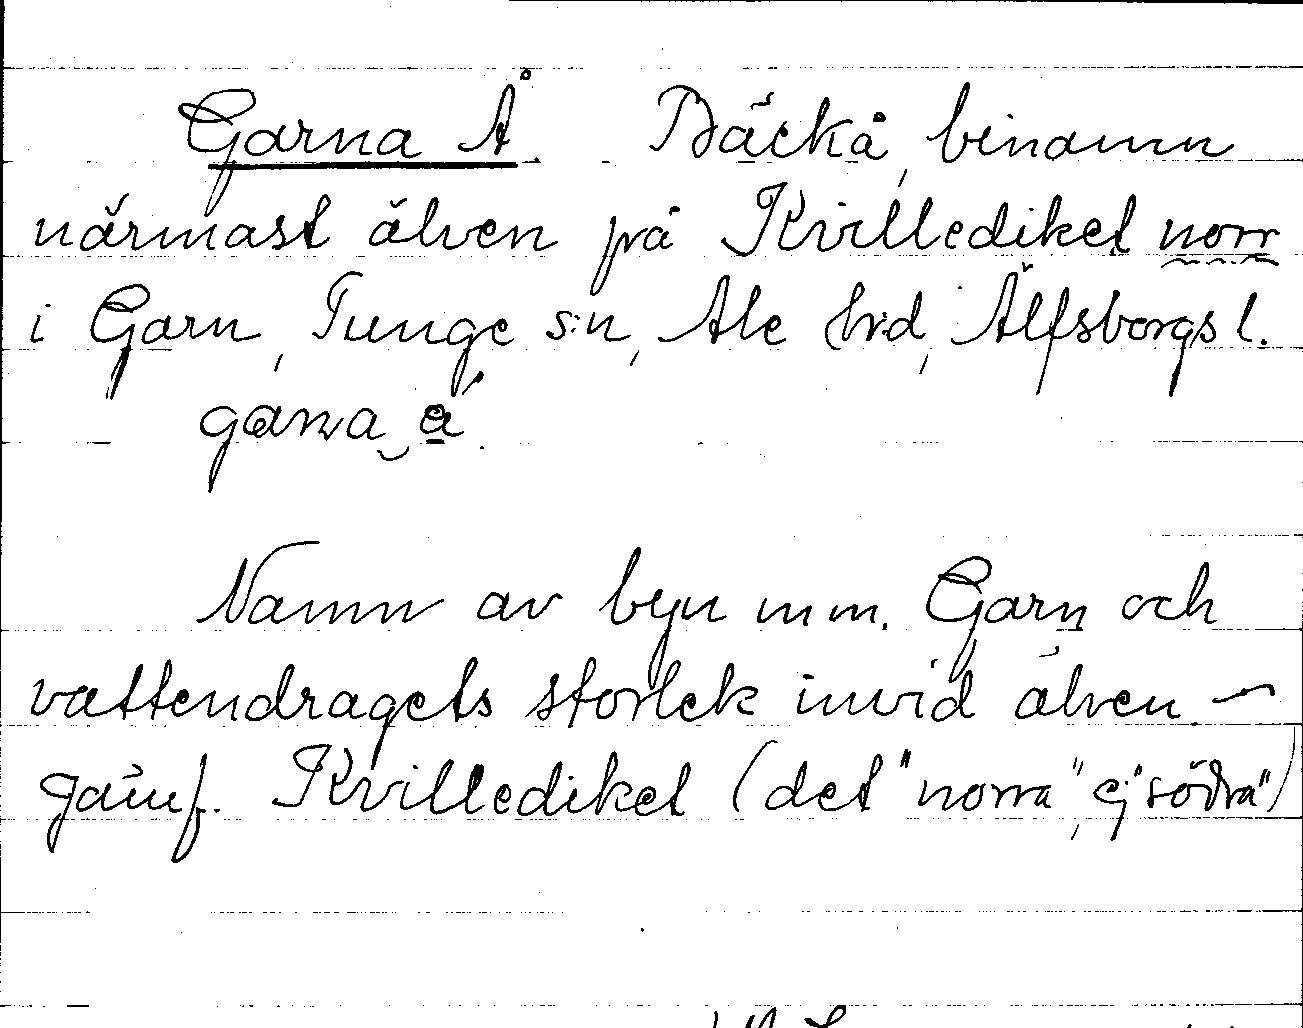 Garna Å. Bäckå, binamn
närmast älven på Kvillediket norr
i Garn, Tunge s:n, Ale hd, Älfsborgs l.
garna å.
Namn av byn mm. Garn och
vattendragets storlek invid älven. –
Jämf. Kvillediket (det "norra", ej "södra")